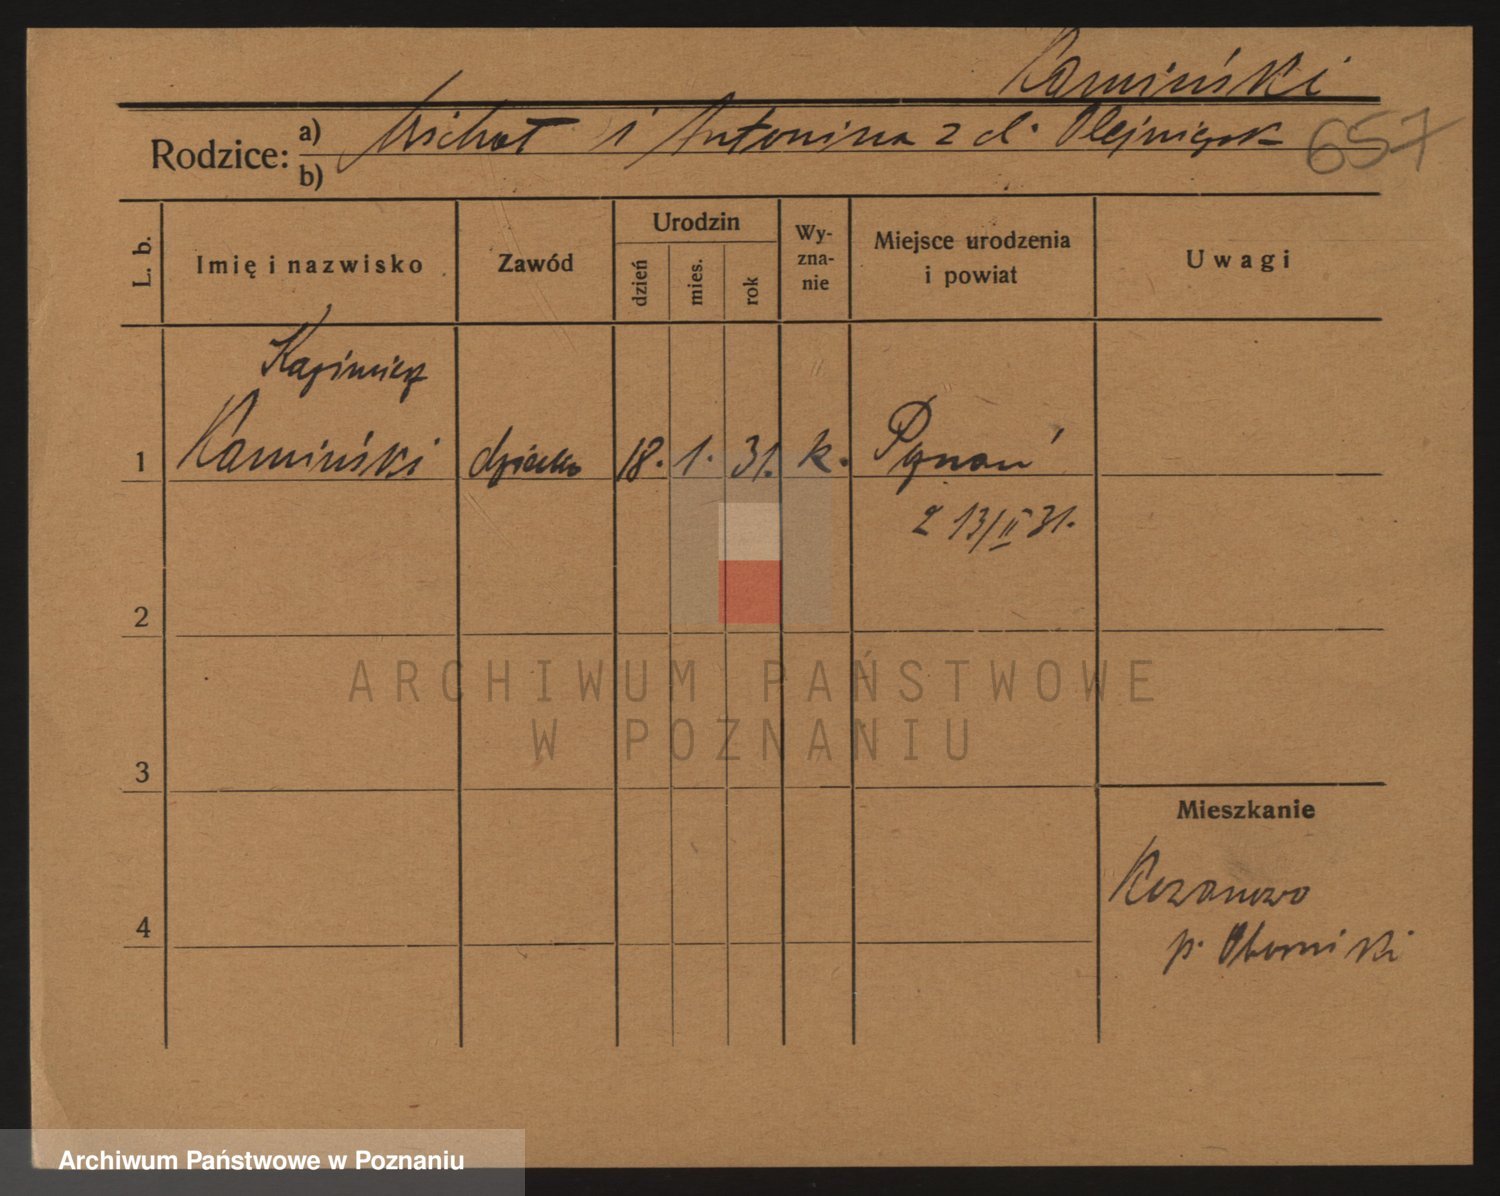 Kamiński
Rodzice: a) Michał i Antonina z d. Olejniczak 657
b)
L. b.
Imię i nazwisko
Zawód
Urodzin
dzień
mies.
rok
Wy-
zna-
nie
Miejsce urodzenia
i powiat
Uwagi
Kazimierz
1 Kamiński dziecko 18. 1. 31. k. Poznań
z 13/II 31.
2
ARCHIWUM PAŃSTWOWE
W POZNANIU
3
Mieszkanie
p. Oborniki
4
Archiwum Państwowe w Poznaniu